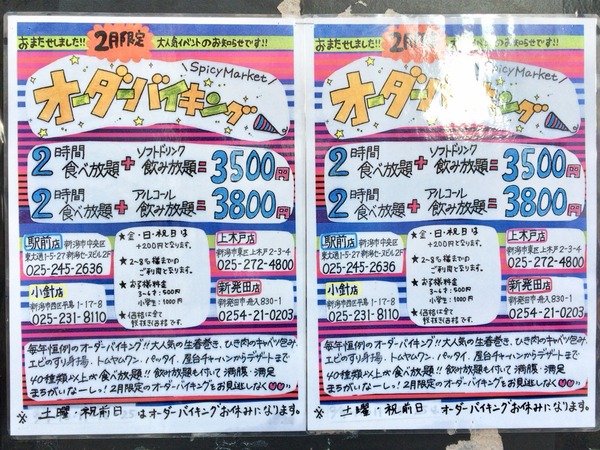 おまたせしました!! 2月限定 大人気イベントのお知らせです!!
\SpicyMarket/
オーダーバイキング
2時間食べ放題+ソフトドリンク飲み放題=3500円
2時間食べ放題+アルコール飲み放題=3800円
駅前店 新潟市中央区
東大通1-5-27 新潟セヌビル2F
025-245-2636
小針店
新潟市西区平島1-17-8
025-231-8110
★金・日・祝日は
+200円となります。
★2~8名様までの
ご利用と致します。
★お子様料金
3~6才:500円
小学生:1000円
★価格は全て
税抜き価格です。
上木戸店
新潟市東区上木戸2-3-4
025-272-4800
新発田店
新発田市舟入830-1
0254-21-0203
毎年恒例のオーダーバイキング!!大人気の生春巻き、ひき肉のキャベツ包み、
エビのすり身揚、トムヤムクン、パッタイ、屋台チャーハンからデザートまで
40種類以上が食べ放題!!飲み放題も付いて満腹・満足
まちがいなーしっ!2月限定のオーダーバイキングをお見逃しなく
※土曜・祝前日はオーダーバイキングお休みになります。
おまたせしました!! 2月限 大人気イベントのお知らせです!!
SpicyMarket/
オーダーバイキング
2時間食べ放題+ソフトドリンク飲み放題=3500円
2時間食べ放題+アルコール飲み放題=3800円
駅前店 新潟市中央区
東大通1-5-27 新潟セヌビル2F
025-245-2636
小針店
新潟市西区平島1-17-8
025-231-8110
★金・日・祝日は
+200円となります。
★2~8名様までの
ご利用と致します。
★お子様料金
3~6才:500円
小学生:1000円
★価格は全て
税抜き価格です。
上木戸店
新潟市東区上木戸2-3-4
025-272-4800
新発田店
新発田市舟入830-1
0254-21-0203
毎年恒例のオーダーバイキング!!大人気の生春巻き、ひき肉のキャベツ包み、
エビのすり身揚、トムヤムクン、パッタイ、屋台チャーハンからデザートまで
40種類以上が食べ放題!!飲み放題も付いて満腹・満足
まちがいなーしっ!2月限定のオーダーバイキングをお見逃しなく
※土曜・祝前日 オーダーバイキングお休みになります。